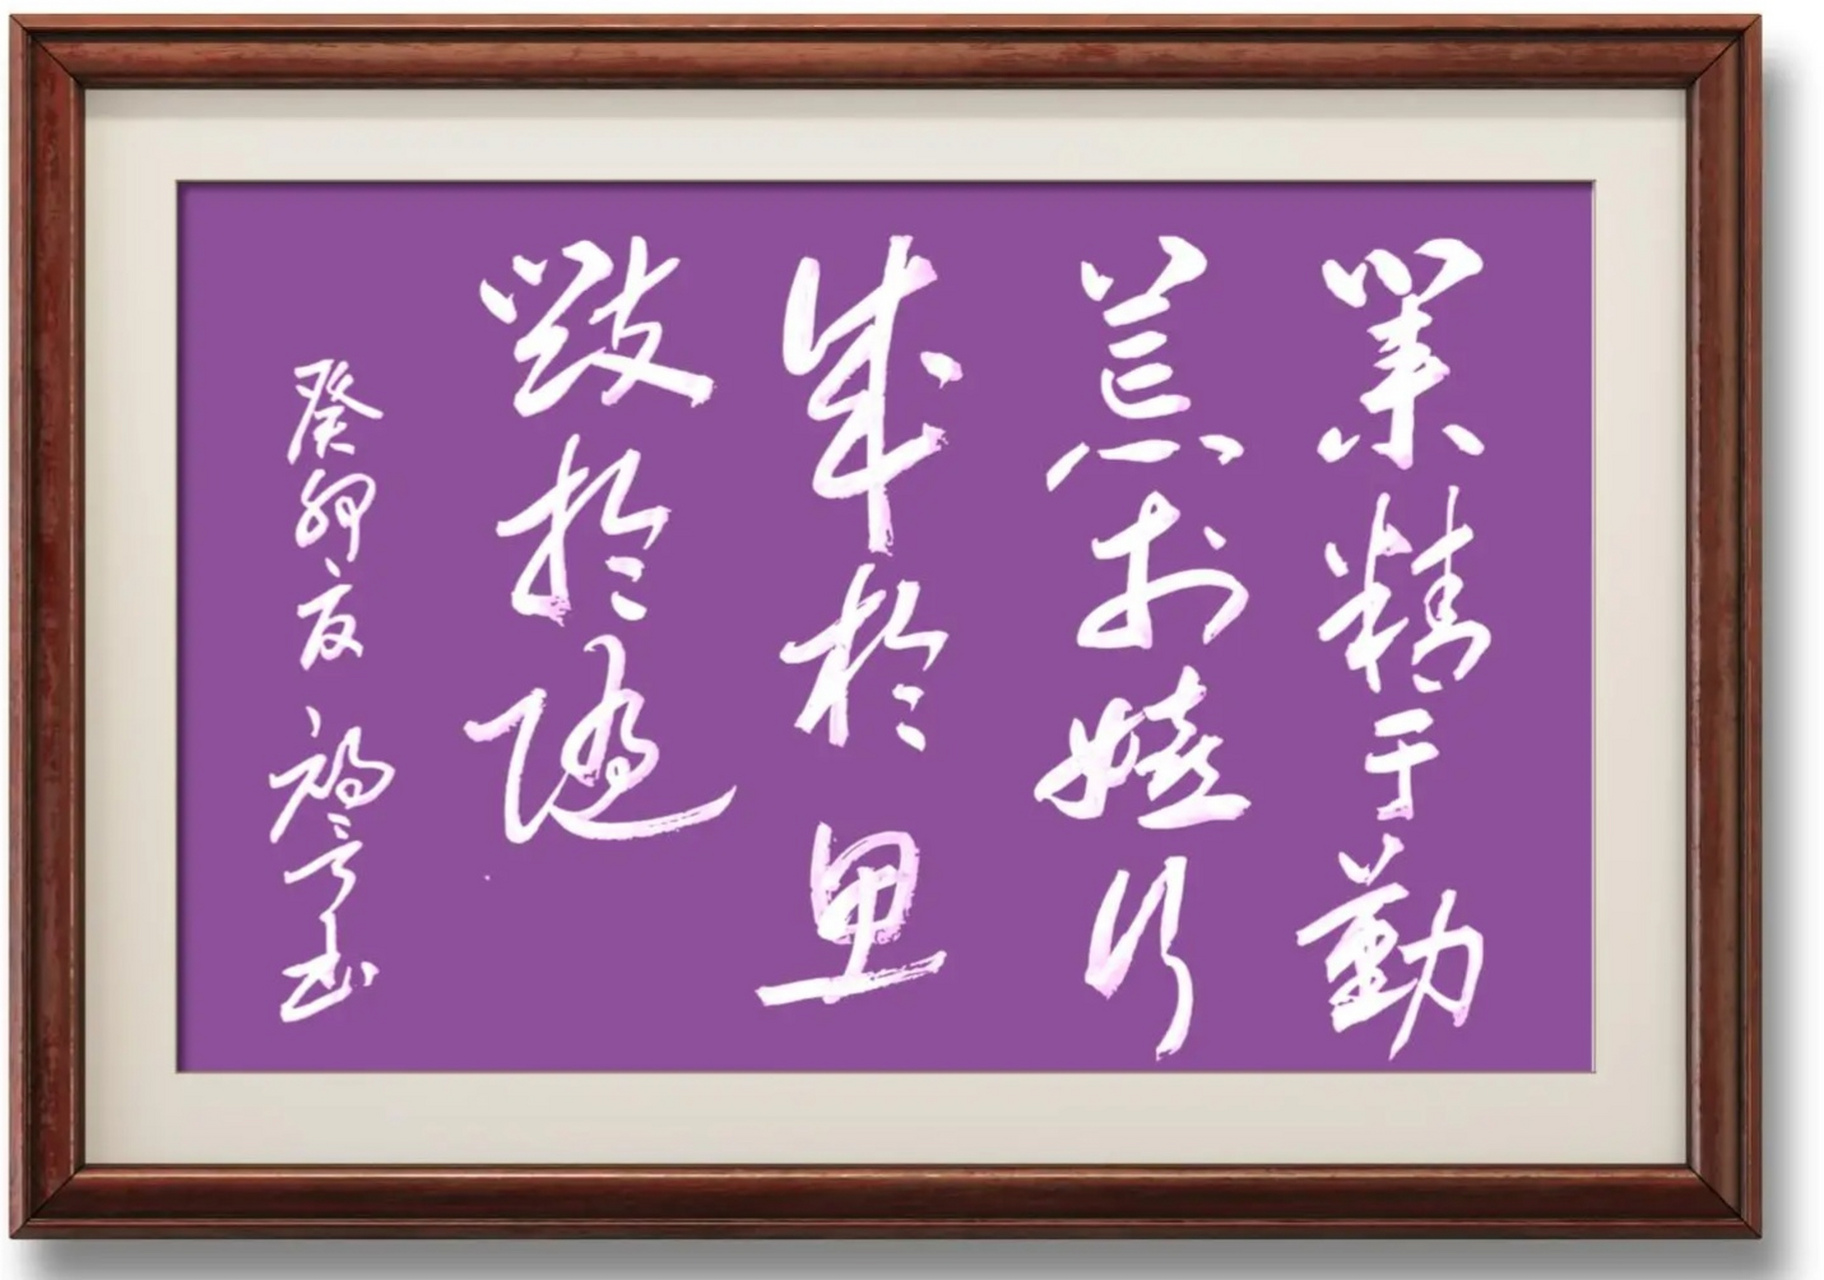 業精于勤
荒於嬉行
成於思
毀於隨
癸卯夏